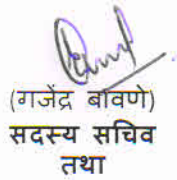 (गजेंद्र बावणे)
सदस्य सचिव
तथा